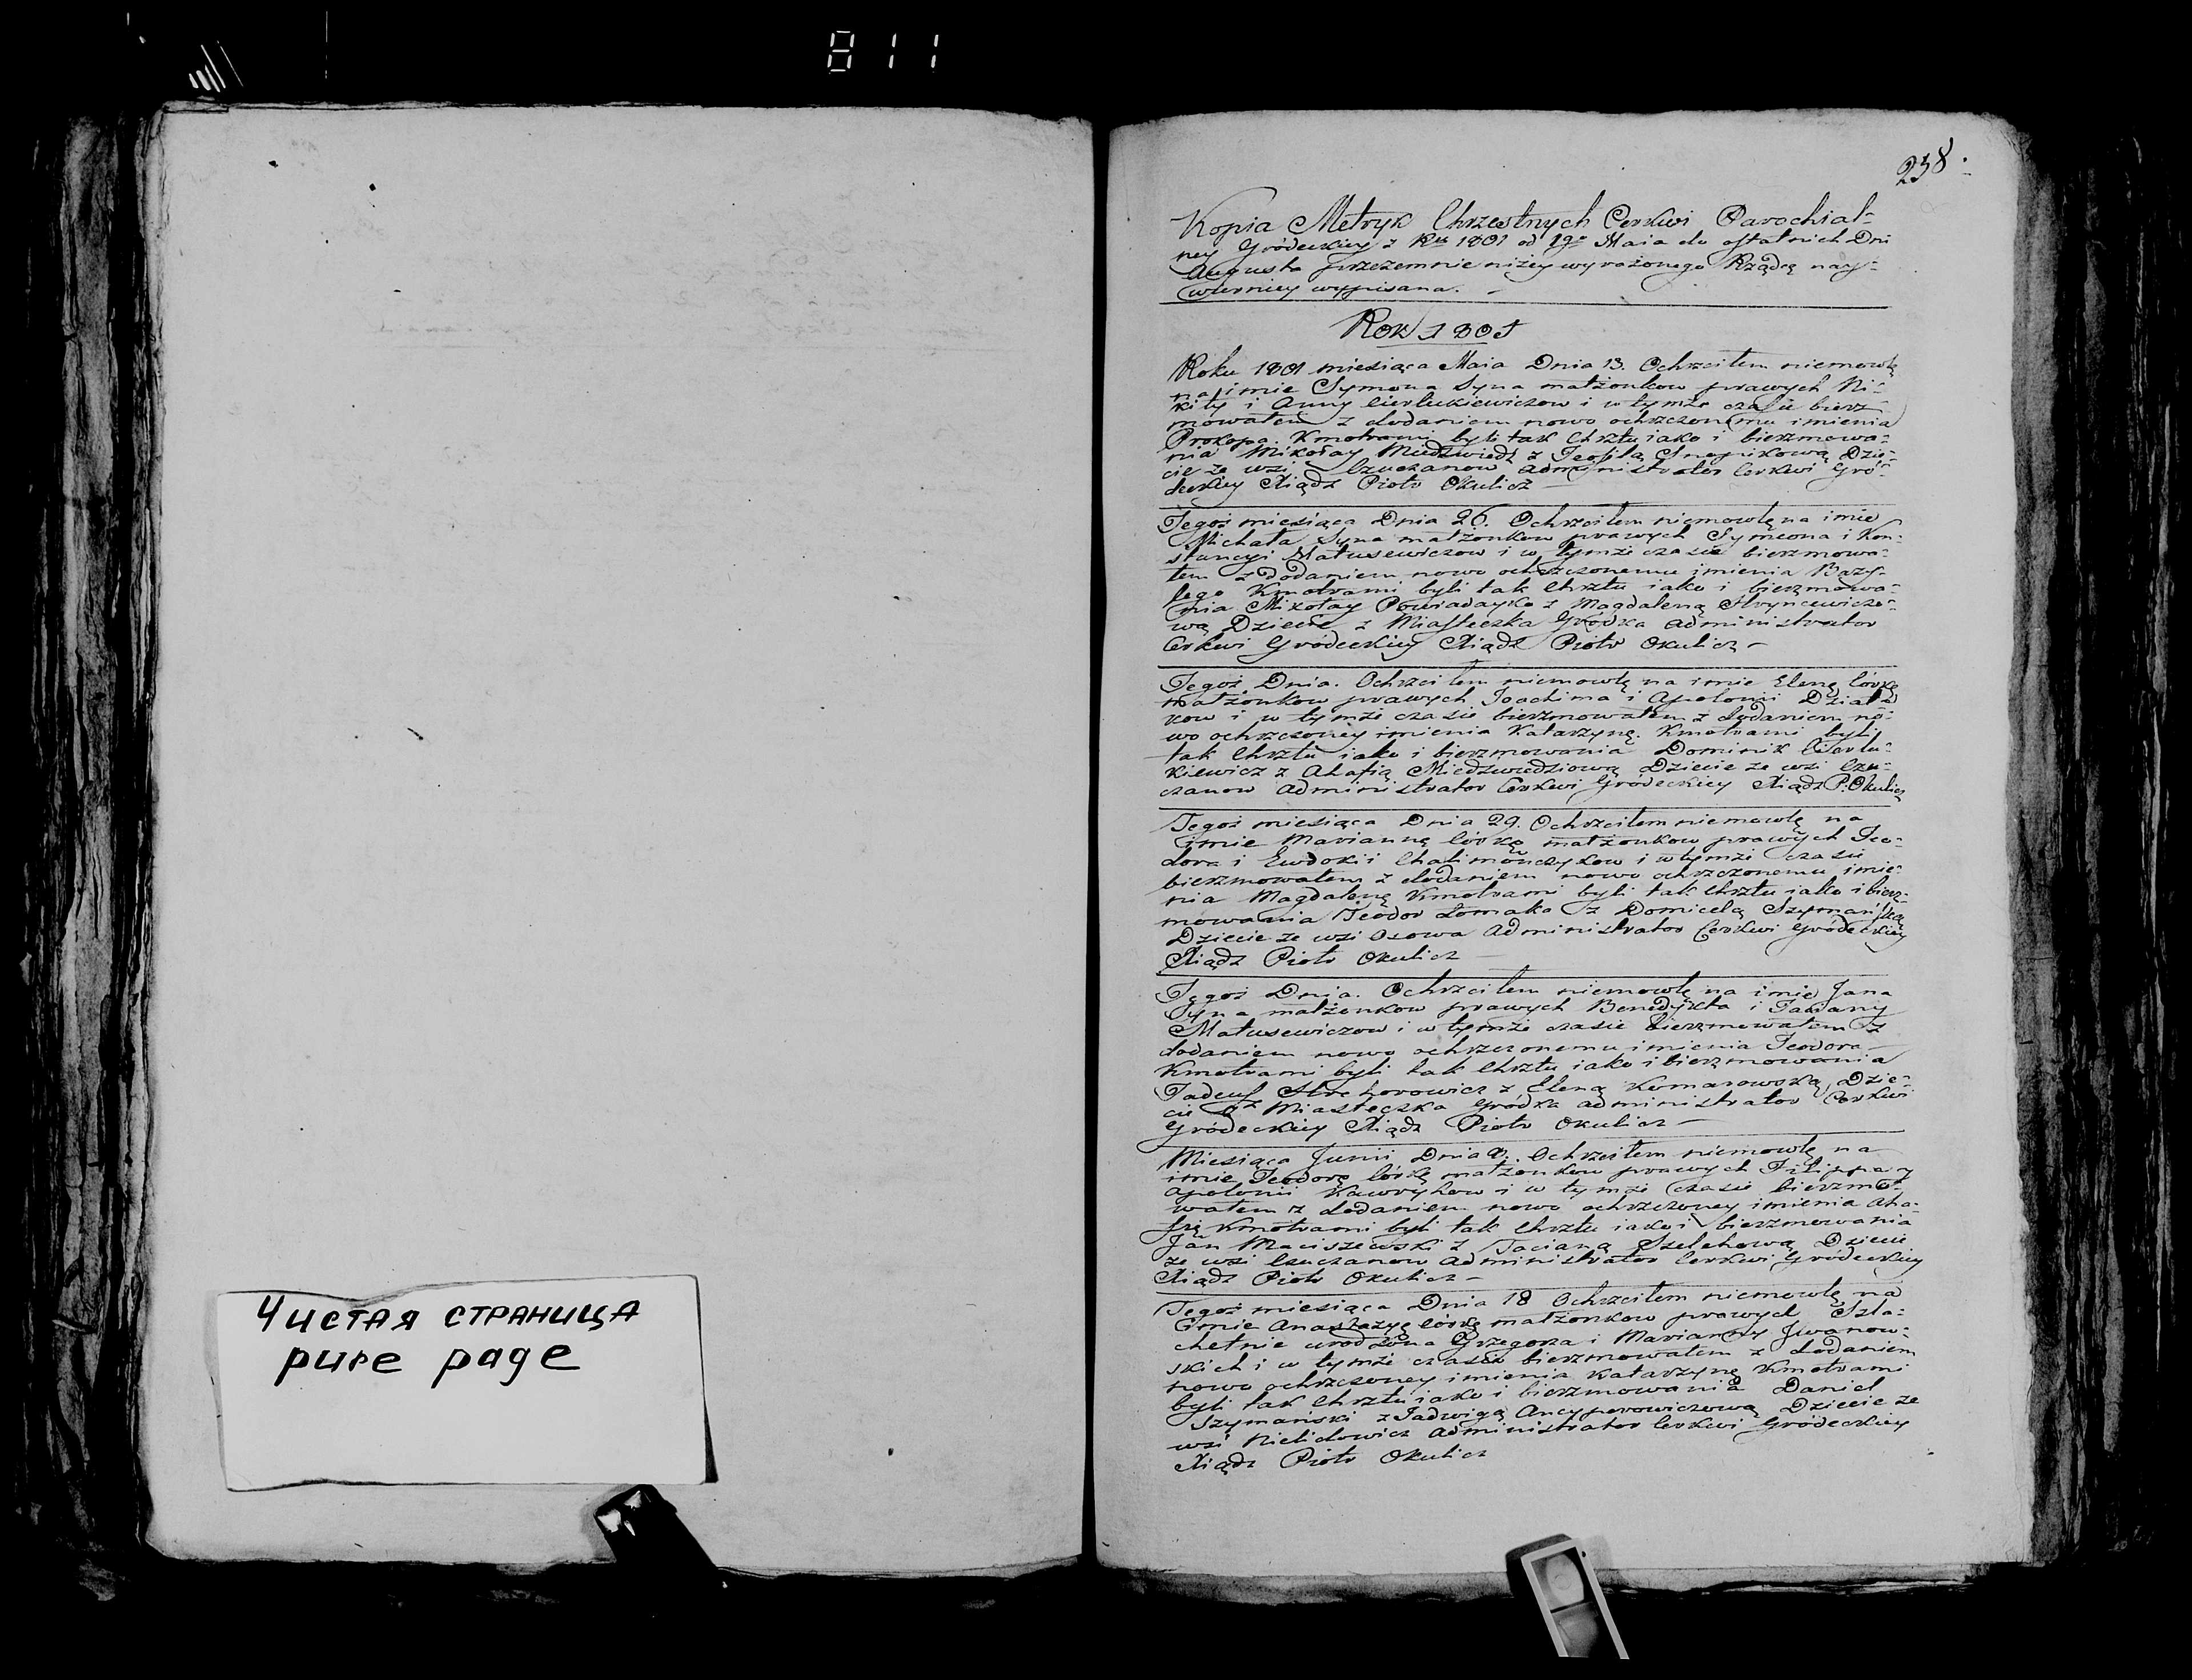 811
Чистая страница
pure page
238.
Kopia Metryk Chrzestnych Cerkwi Parochial-
ney Gródeckiey z Rku 1801 od 1go Maia do ostatnich Dni
Augusta przezemnie niżey wyrażonego Rządcę nay-
wierniey wypisana. –
Rok 1801
Roku 1801 miesiąca Maia Dnia 13. Ochrzciłem niemowlę
na imie Symona Syna małżonkow prawych Ni-
kity i Anny Cierlukiewiczow i w tymże czasie bierz-
mowałem z dodaniem nowo ochrzczonemu imienia
Prokopa. Kmotrami byli tak Chrztu iako i bierzmowa-
nia Mikołay Miedzwiedź z Teofilą Dzie-
cie ze wsi Czuczanow Administrator Cerkwi Gró-
deckiey Xiądz Piotr Okulicz
Tegoż miesiąca Dnia 26. Ochrzciłem niemowlę na imie
Michała Syna małżonkow prawych Symeona i Kon-
stancyi Matusewiczow i w tymże czasie bierzmowa-
łem z dodaniem nowo ochrzczonemu imienia Bazy-
lego Kmotrami byli tak Chrztu iako i bierzmowa-
nia Mikołay Powiadayko z Magdaleną Hryncewiczo-
wą Dziecie z Miasteczka Gródka Administrator
Cerkwi Gródeckiey Xiądz Piotr Okulicz –
Tegoż Dnia. Ochrzciłem niemowlę na imie Elenę Córkę
małżonkow prawych Joachima i Apolonii
kow i w tymże czasie bierzmowałem z dodaniem no-
wo ochrzczoney imienia Katarzynę. Kmotrami byli
tak Chrztu iako i bierzmowania Dominik Cierlu-
kiewicz z Ahafią Miedzwiedziową Dziecie ze wsi Czu-
czanow Administrator Cerkwi Gródeckiey Xiądz P. Okulicz
Tegoż miesiąca Dnia 29. Ochrzciłem niemowlę na
imie Mariannę Córkę małżonkow prawych Teo-
dora i Ewdokii Chalimończykow i w tymże czasie
bierzmowałem z dodaniem nowo ochrzczonemu imie-
nia Magdalenę Kmotrami byli tak Chrztu iako i bierz-
mowania Teodor Łomako z Domicelą Szymańską
Dziecie ze wsi Osowa Administrator Cerkwi Gródeckiey
Xiądz Piotr Okulicz –
Tegoż Dnia. Ochrzciłem niemowlę na imie Jana
Syna małżonkow prawych Benedykta i Taciany
Matusewiczow i w tymże czasie bierzmowałem z
dodaniem nowo ochrzczonemu imienia Teodora –
Kmotrami byli tak Chrztu iako i bierzmowania
Tadeusz z Eleną Komarowską, Dzie-
cie z Miasteczka Gródka Administrator Cerkwi
Gródeckiey Xiądz Piotr Okulicz –
Miesiąca Junii Dnia Ochrzciłem niemowlę na
imie Teodorę Córkę małżonkow prawych Filippa y
Apolonii Kawrykow i w tymże czasie bierzmo-
wałem z dodaniem nowo ochrzczoney imienia Aha-
fię Kmotrami byli tak Chrztu iako i bierzmowania
Jan Maciszewski z Tacianą Szelehową Dziecie
ze wsi Czuczanow Administrator Cerkwi Gródeckiey
Xiądz Piotr Okulicz –
Tegoż miesiąca Dnia 18 Ochrzciłem niemowlę na
imie Anastazyę Córkę małżonkow prawych Szla-
chetnie urodzona Grzegorza i Marianny Jwanow-
skich i w tymże czasie bierzmowałem z dodaniem
nowo ochrzczoney imienia Katarzynę Kmotrami
byli tak Chrztu iako i bierzmowania Daniel
Szymański z Jadwigą Ancyperowiczową Dziecie ze
wsi Nielidowicz Administrator Cerkwi Gródeckiey
Xiądz Piotr Okulicz